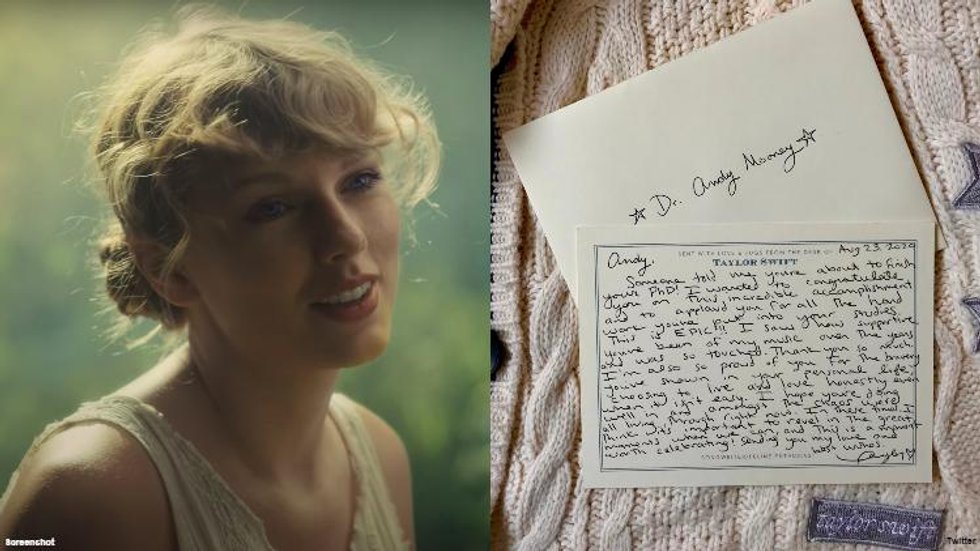 ☆ Dr. Andy Mooney ☆
SENT WITH LOVE & HUGS FROM THE DESK OF
Aug 23 2020
TAYLOR SWIFT
Andy,
Someone told me you're about to finish
your PhD! I wanted to congratulate
you on this incredible accomplishment
and to applaud you for all the hard
work you've put into your studies.
This is EPIC!!! I saw how supportive
you've been of my music over the years
and was so touched. Thank you so much.
I'm also so proud of you for the bravery
you've shown in your personal life,
choosing to live and love honestly even
when it isn't easy. I hope you're doing
well in and amidst the chaos we're
all living through right now. In these times I
think it's important to revel in the great
moments when we can and this is a moment
worth celebrating! Sending you my love and
best wishes.
Taylor ♡
taylor swift
Screenshot
Twitter